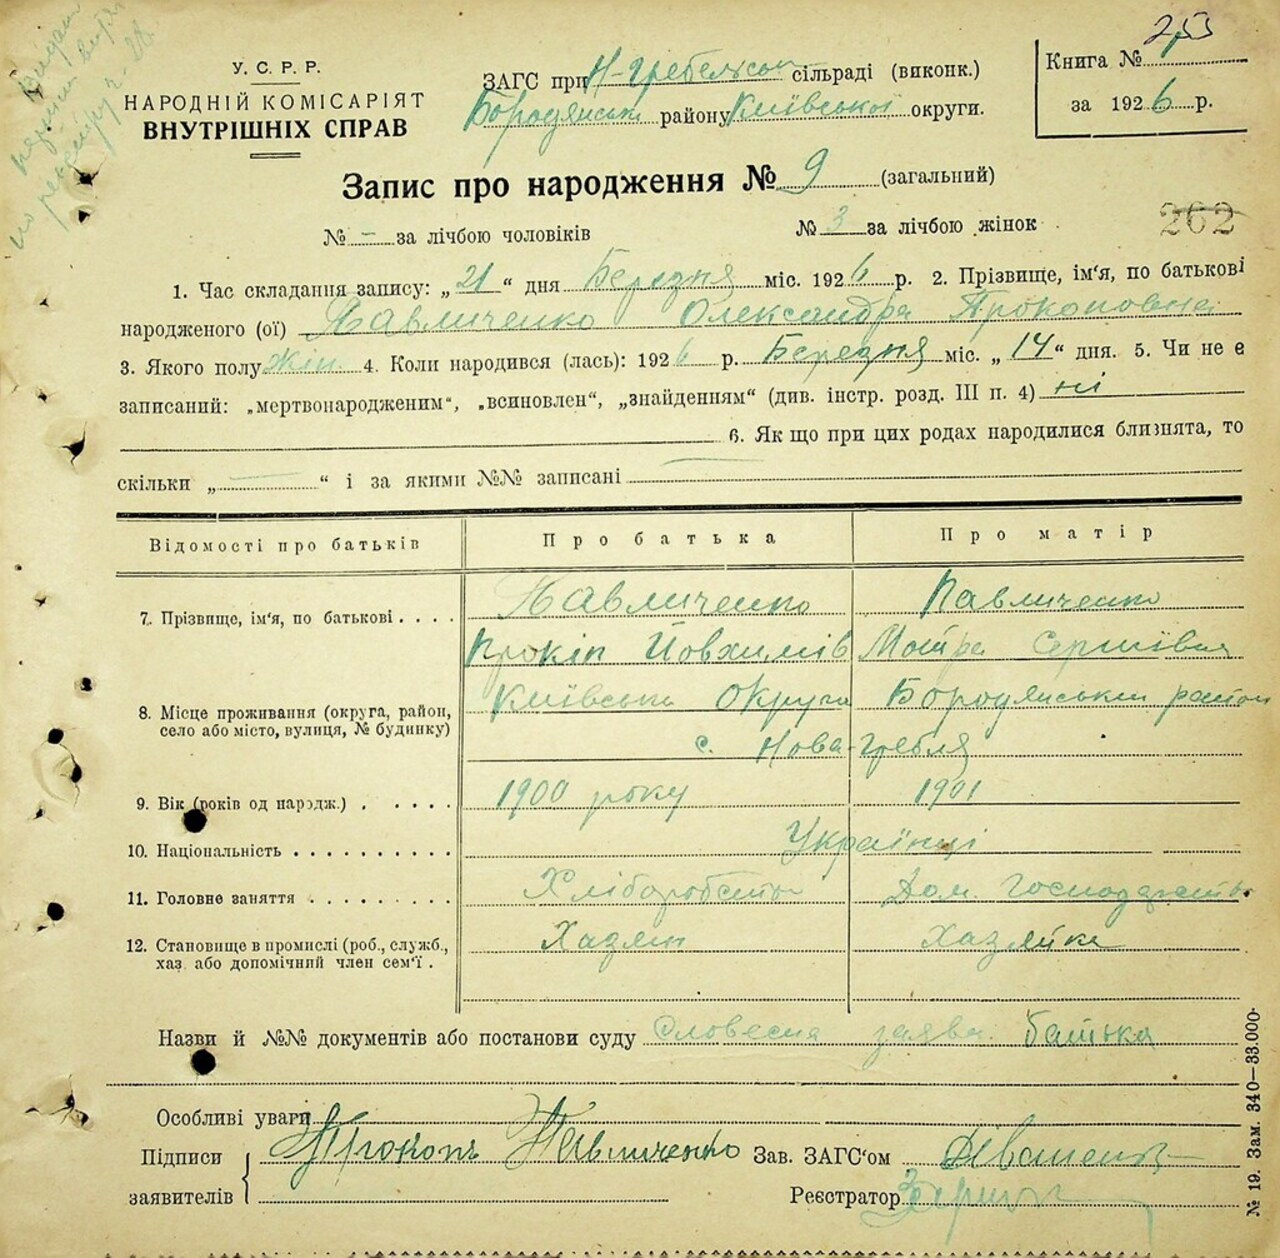 У. С. Р. Р.
НАРОДНІЙ КОМІСАРІЯТ
ВНУТРІШНІХ СПРАВ
ЗАГС при Н-Гребельськ сільраді (виконк.)
Бородянськ району Київської округи.
Книга №
за 1926 р.
Запис про народження № 9 (загальний)
№ - за лічбою чоловіків № 3 за лічбою жінок
262
1. Час складання запису: „21“ дня Березня міс. 1926 р. 2. Прізвище, ім'я, по батькові
народженого (ої) Павличенко Олександра Прокоповна
3. Якого полу Жін. 4. Коли народився (лась): 1926 р. Березня міс. „14“ дня. 5. Чи не є
записаний: „мертвонародженим“, „всиновлен“, „знайденням“ (див. інстр. розд. III п. 4) ні
6. Як що при цих родах народилися близнята, то
скільки „ “ і за якими №№ записані
Відомості про батьків Про батька Про матір
7. Прізвище, ім'я, по батькові . . . . Павличенко Павличенко
Прокіп Йовхимів Мотря Сергіївна
8. Місце проживання (округа, район, Київська Округа Бородянський район
село або місто, вулиця, № будинку) с. Нова-Гребля
9. Вік (років од народж.) . . . . . 1900 року 1901
10. Національність . . . . . . . . . . Українці
11. Головне заняття . . . . . . . . . Хліборобство Дом. Господарство
12. Становище в промислі (роб., служб., Хазяїн Хазяйка
хаз. або допомічний член сем'ї .
Назви й №№ документів або постанови суду Словесна заява батька
Особливі уваги
Підписи Прокопъ Павличенко Зав. ЗАГС'ом
заявителів Реєстратор
№ 19. Зам. 340—33.000·